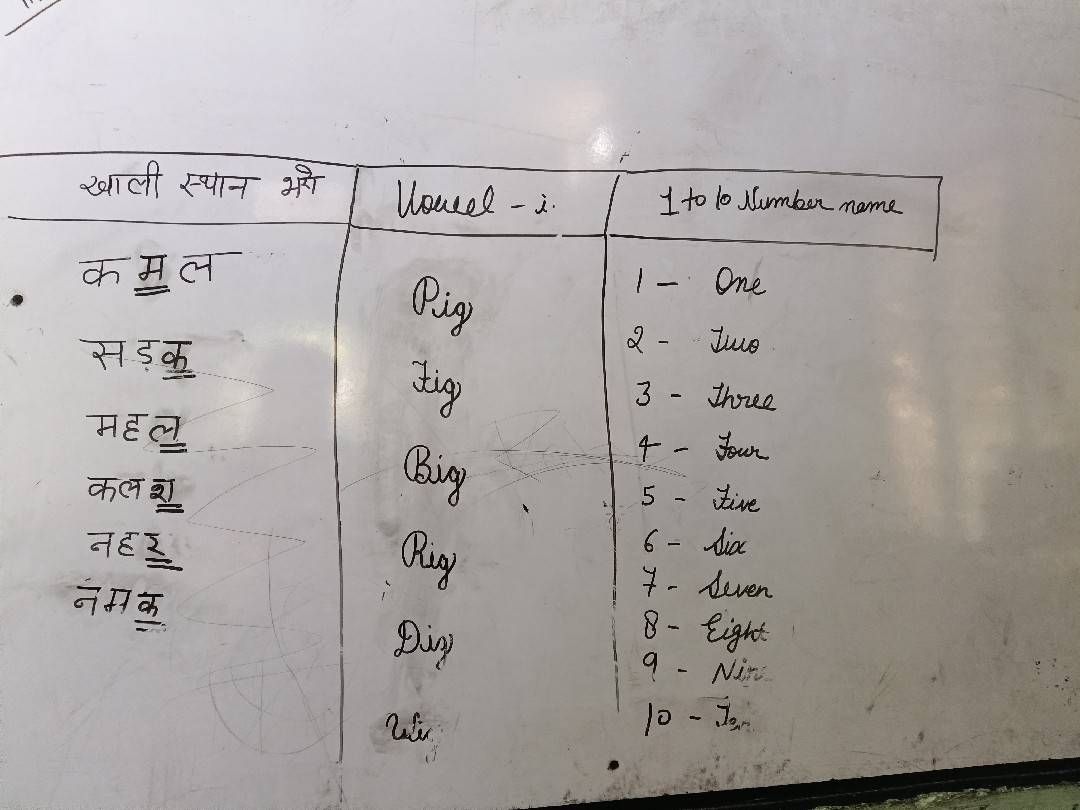 खाली स्थान भरो
कमल
सड़क
महल
कलश
नहर
नमक
Vowel - i.
Pig
Fig
Big
Rig
Dig
1 to 10 Number name
1 - One
2 - Two
3 - Three
4 - Four
5 - Five
6 - Six
7 - Seven
8 - Eight
9 -
10 -